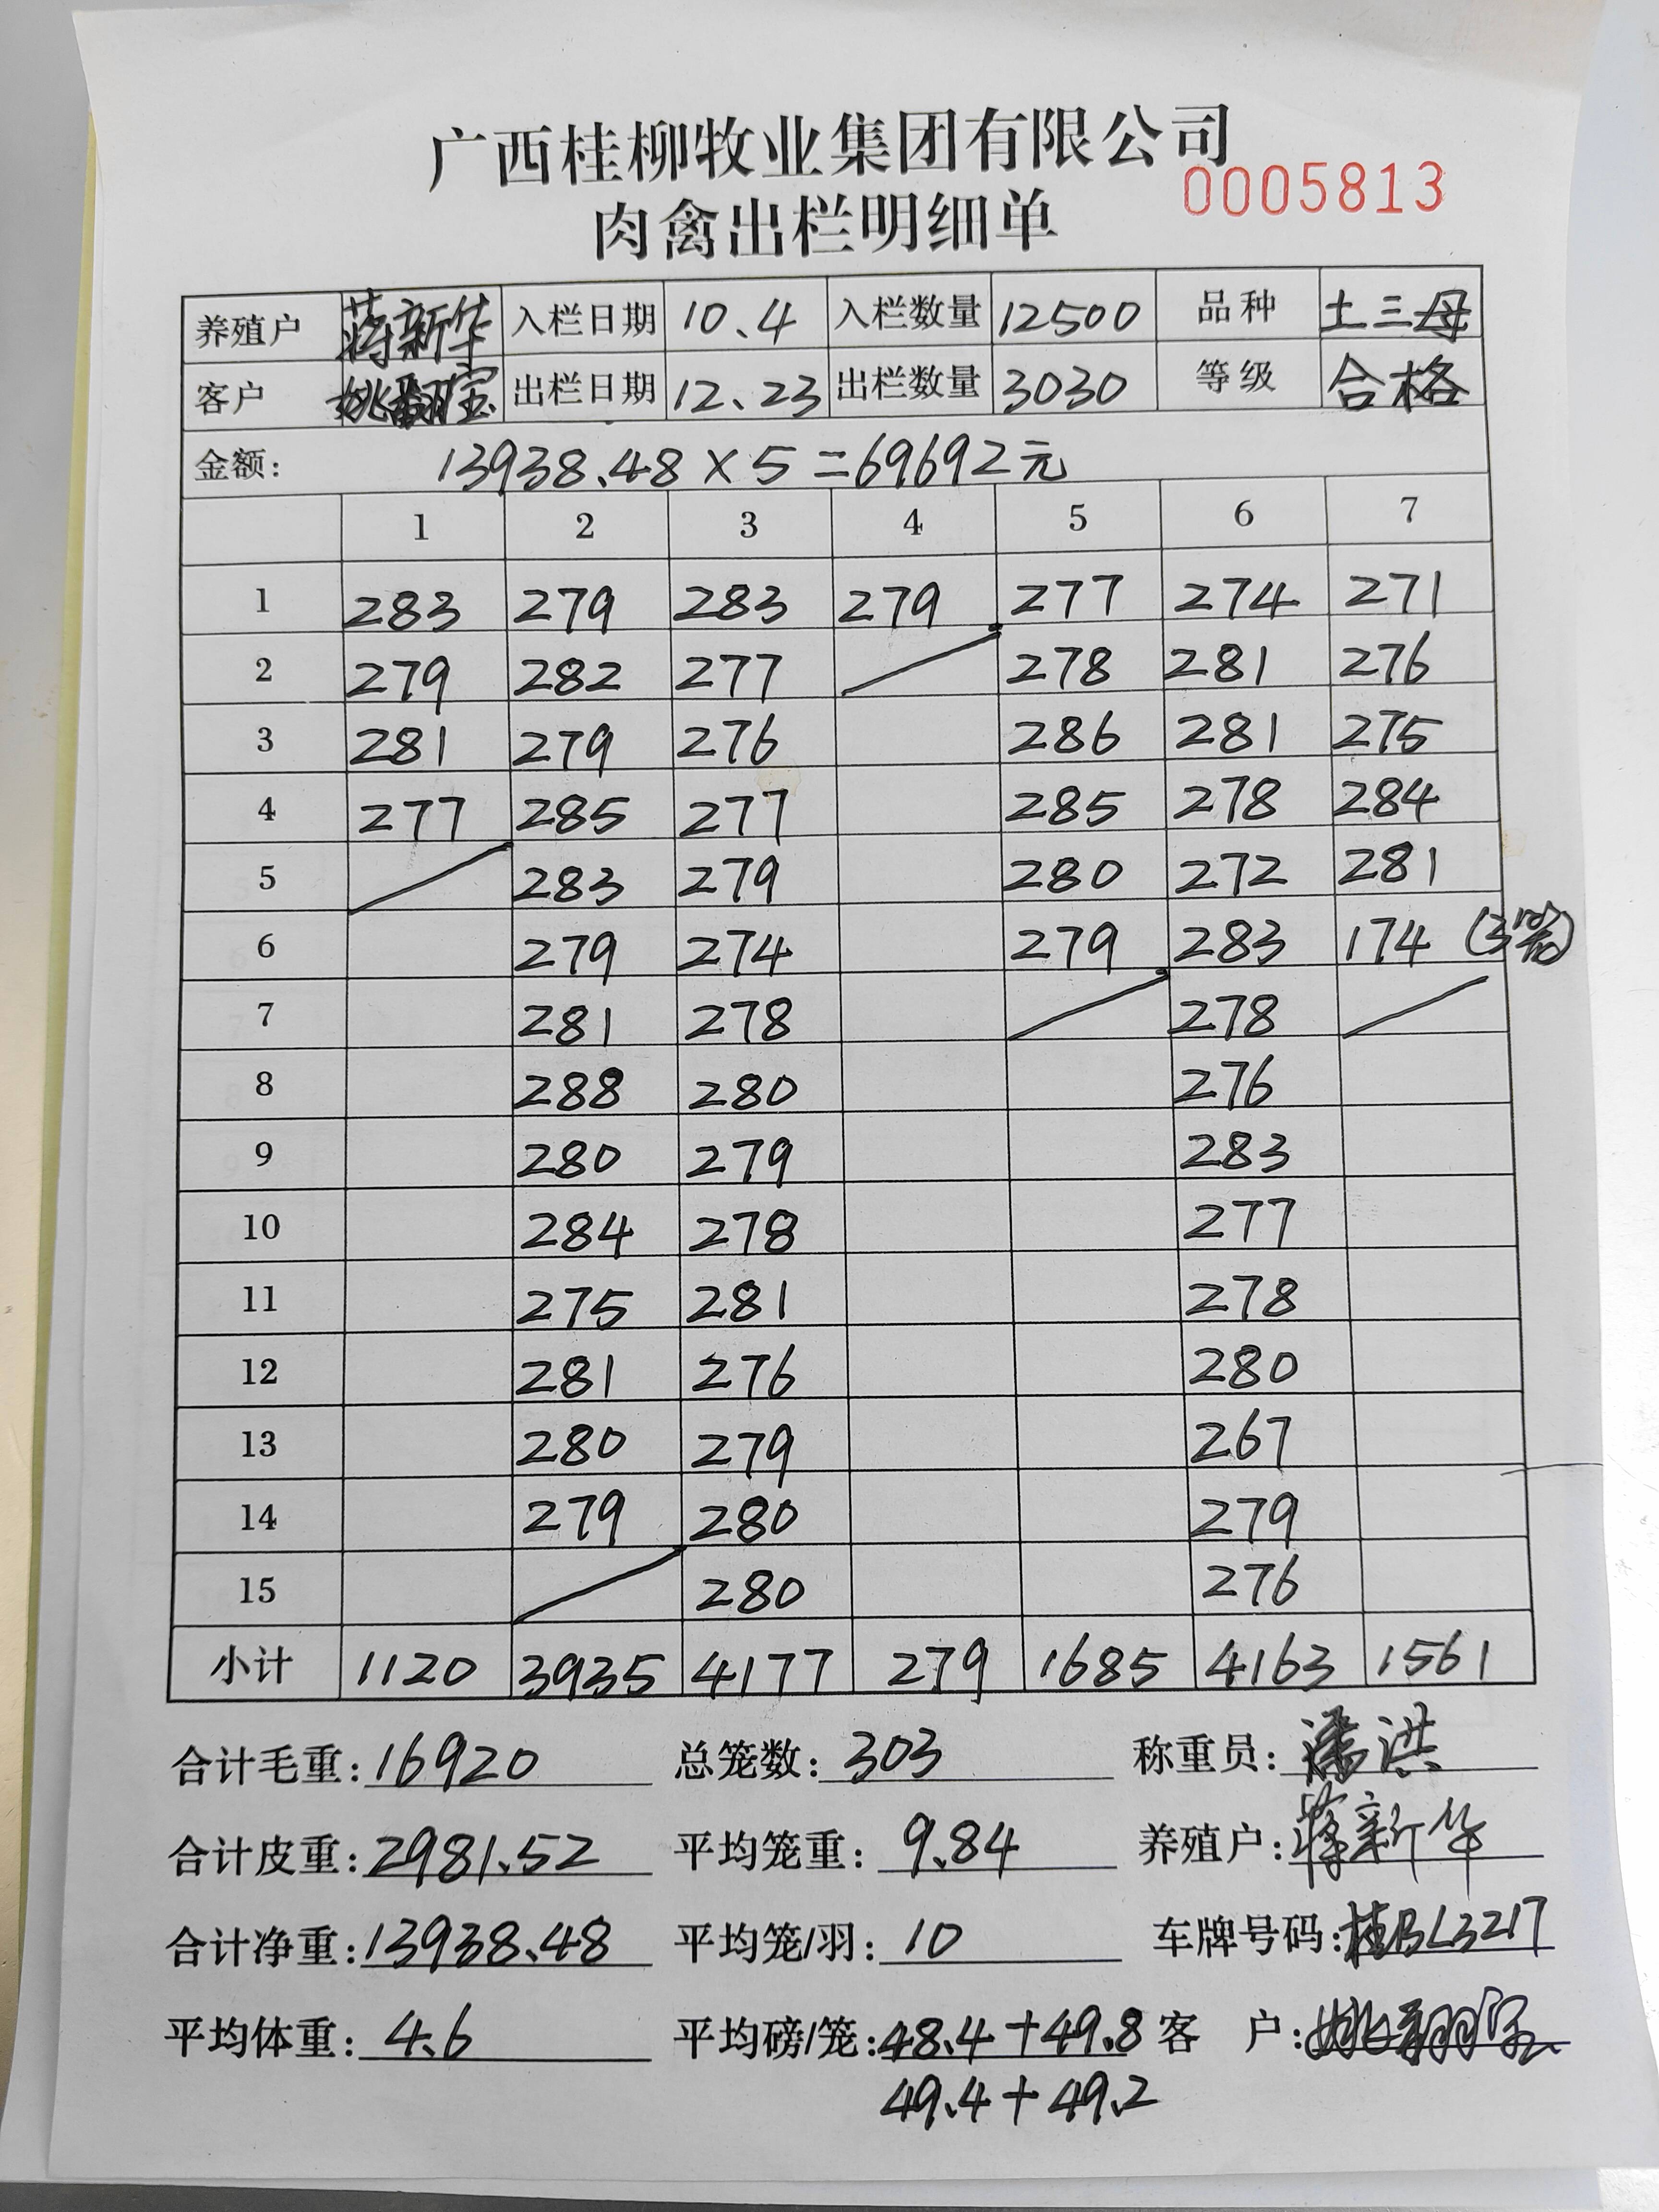 广西桂柳牧业集团有限公司
0005813
肉禽出栏明细单
养殖户 蒋新华 入栏日期 10.4 入栏数量 12500 品种 土三母
客户 姚翻宝 出栏日期 12.23 出栏数量 3030 等级 合格
金额: 13938.48×5=69692元
1 2 3 4 5 6 7
1 283 279 283 279 277 274 271
2 279 282 277 278 281 276
3 281 279 276 286 281 275
4 277 285 277 285 278 284
5 283 279 280 272 281
6 279 274 279 283 174 (3笼)
7 281 278 278
8 288 280 276
9 280 279 283
10 284 278 277
11 275 281 278
12 281 276 280
13 280 279 267
14 279 280 279
15 280 276
小计 1120 3935 4177 279 1685 4163 1561
合计毛重:16920 总笼数:303 称重员:潘洪
合计皮重:2981.52 平均笼重:9.84 养殖户:蒋新华
合计净重:13938.48 平均笼/羽:10 车牌号码:桂BL3217
平均体重:4.6 平均磅/笼:48.4+49.8 客户:
49.4+49.2